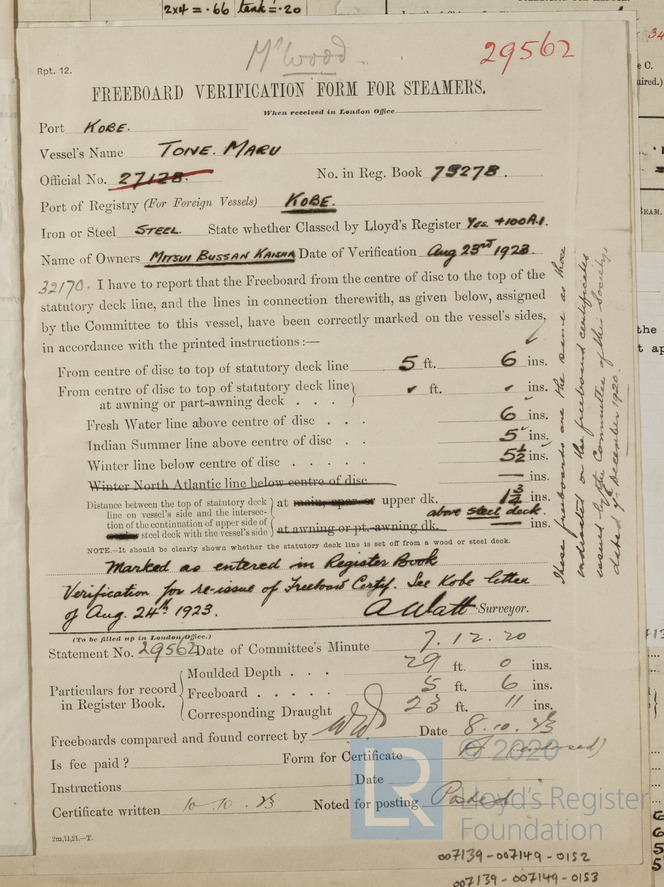 2x4 = .66 tank = .20
Mr Wood.
29562
Rpt. 12.
FREEBOARD VERIFICATION FORM FOR STEAMERS.
When received in London Office
Port KOBE.
Vessel's Name TONE. MARU
Official No. 27128. No. in Reg. Book 79278.
Port of Registry (For Foreign Vessels) KOBE.
Iron or Steel STEEL State whether Classed by Lloyd's Register Yes. +100A.1.
Name of Owners MITSUI BUSSAN KAISHA Date of Verification Aug 23rd 1923.
32170. I have to report that the Freeboard from the centre of disc to the top of the
statutory deck line, and the lines in connection therewith, as given below, assigned
by the Committee to this vessel, have been correctly marked on the vessel's sides,
in accordance with the printed instructions:—
From centre of disc to top of statutory deck line 5 ft. 6 ins.
From centre of disc to top of statutory deck line
at awning or part-awning deck . . . ft. ins.
Fresh Water line above centre of disc . . . 6 ins.
Indian Summer line above centre of disc . . 5 ins.
Winter line below centre of disc . . . 5½ ins.
Winter North Atlantic line below centre of disc — ins.
Distance between the top of statutory deck
line on vessel's side and the intersec-
tion of the continuation of upper side of
steel deck with the vessel's side
at main, spar or upper dk. 1¾ ins.
above steel deck.
at awning or pt.-awning dk. — ins.
NOTE.—It should be clearly shown whether the statutory deck line is set off from a wood or steel deck.
Marked as entered in Register Book
Verification for re-issue of Freeboard Certif. See Kobe letter
of Aug. 24th 1923. A Watt Surveyor.
These freeboards are the same as those
indicated on the freeboard certificates
issued by the Committee of this Society,
dated 7th December 1920.
(To be filled up in London Office.)
Statement No. 29562 Date of Committee's Minute 7.12.20
Particulars for record
in Register Book.
Moulded Depth . . . 29 ft. 0 ins.
Freeboard . . . . . 5 ft. 6 ins.
Corresponding Draught 23 ft. 11 ins.
Freeboards compared and found correct by Date 8.10.23
Is fee paid? Form for Certificate
Instructions Date
Certificate written 10.10.23 Noted for posting Posted
2m,11,21.—T.
LR
© 2020
Lloyd's Register
Foundation
007139-007149-0152
007139-007149-0153